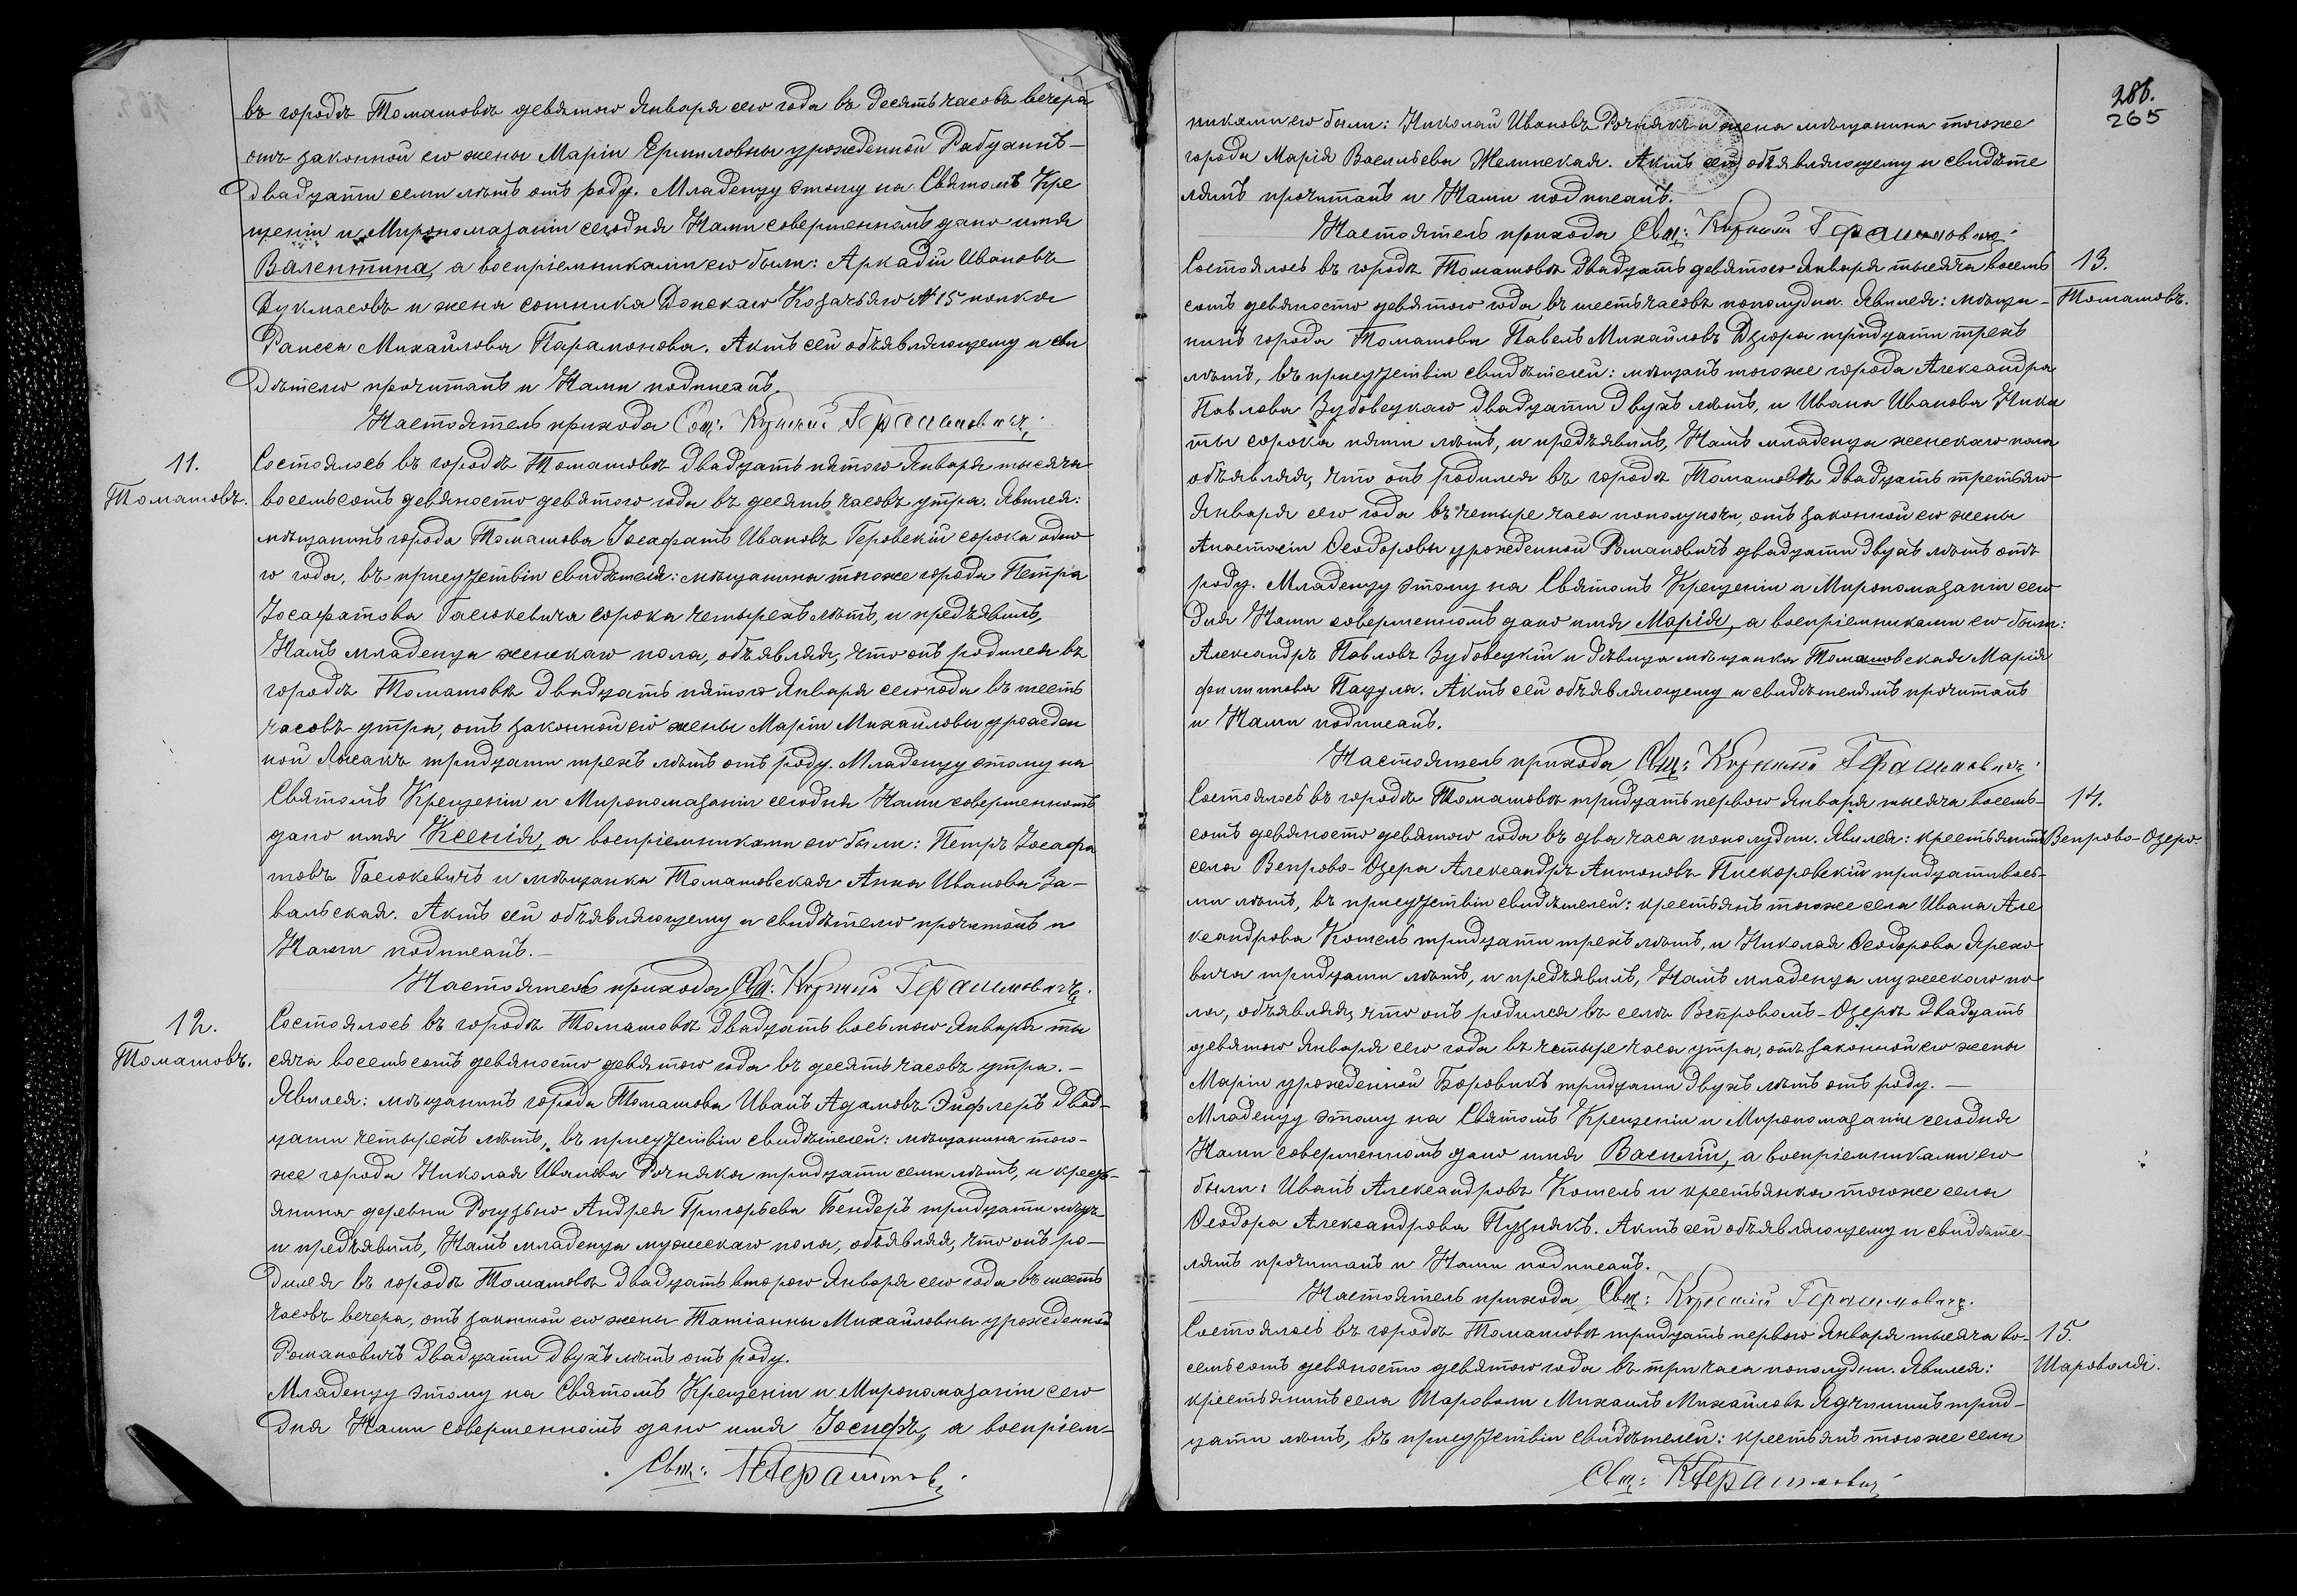 въ городѣ Томашовѣ девятого Января сего года въ десять часовъ вечера
отъ законной его жены Маріи Ермиловны урожденной Рабухинъ
двадцати семи лѣтъ отъ роду. Младенцу этому на Святомъ Кре
щеніи и Мѵропомазаніи сегодня Нами совершенномъ дано имя
Валентина, а воспріемниками его были: Аркадій Ивановъ
Дукмасовъ и жена сотника Донскаго Козачьяго №15 полка
Раиса Михайлова Парамонова. Актъ сей объявляющему и сви
дѣтелю прочитанъ и Нами подписанъ.
Настоятель прихода Свщ: Корнилій Герасимовичъ.
11.
Томашовъ.
Состоялось въ городѣ Томашовѣ двадцать пятого Января тысяча
восемьсотъ девяносто девятого года въ десять часовъ утра. Явился:
мѣщанинъ города Томашова Іосафатъ Ивановъ Геровскій сорока одно
го года, въ присутствіи свидѣтеля: мѣщанина тогоже города Петра
Іосафатова Гасюкевича сорока четырехъ лѣтъ, и предъявилъ,
Намъ младенца женскаго пола, объявляя, что онъ родился въ
городѣ Томашовѣ двадцать пятого Января сего года въ шесть
часовъ утра, отъ законной его жены Маріи Михайловы урожден
ной тридцати трехъ лѣтъ отъ роду. Младенцу этому на
Святомъ Крещеніи и Мѵропомазаніи сегодня Нами совершенномъ
дано имя Ксенія, а воспріемниками его были: Петръ Іосафа
товъ Гасюкевичъ и мѣщанка Томашовская Анна Иванова За-
вальская. Актъ сей объявляющему и свидѣтелю прочитанъ и
Нами подписанъ.-
Настоятель прихода Свщ: Корнилій Герасимовичъ.
12.
Томашовъ.
Состоялось въ городѣ Томашовѣ двадцать восьмого Января ты
сяча восемьсотъ девяносто девятого года въ десять часовъ утра.-
Явился: мѣщанинъ города Томашова Иванъ Адамовъ Эйфлеръ двад-
цати четырехъ лѣтъ, въ присутствіи свидѣтелей: мѣщанина того-
же города Николая Иванова Рочняка тридцати семи лѣтъ, и кресть-
янина деревни Рогузьно Андрея Григорьева Бендеръ тридцати лѣтъ
и предъявилъ, Намъ младенца мужескаго пола, объявляя, что онъ ро-
дился въ городѣ Томашовѣ двадцать второго Января сего года въ шесть
часовъ вечера, отъ законной его жены Татіанны Михайловны урожденной
Романовичъ двадцати двухъ лѣтъ отъ роду.
Младенцу этому на Святомъ Крещеніи и Мѵропомазаніи сего
дня Нами совершенномъ дано имя Іосифъ, а воспріем-
Свщ: КГерасимов
286.
265
никами его были: Николай Ивановъ Рочнякъ и жена мѣщанина тогоже
города Марія Васильева Желинская. Актъ сей объявляющему и свидѣте
лямъ прочитанъ и Нами подписанъ.
Настоятель прихода Свщ: Корнилій Герасимовичъ.
13.
Томашовъ.
Состоялось въ городѣ Томашовѣ двадцать девятого Января тысяча восемь
сотъ девяносто девятого года въ шесть часовъ пополудни. Явился: мѣща-
нинъ города Томашова Павелъ Михайловъ Дзюра тридцати трехъ
лѣтъ, въ присутствіи свидѣтелей: мѣщанъ тогоже города Александра
Павлова Зубовецкаго двадцати двухъ лѣтъ, и Ивана Иванова Ники
ты сорока пяти лѣтъ, и предъявилъ, Намъ младенца женскаго пола
объявляя, что онъ родился въ городѣ Томашовѣ двадцать третьяго
Января сего года въ четыре часа пополуночи, отъ законной его жены
Анастасіи Ѳеодоровы урожденной Романовичъ двадцати двухъ лѣтъ отъ
роду. Младенцу этому на Святомъ Крещеніи и Мѵропомазаніи сего
дня Нами совершенномъ дано имя Марія, а воспріемниками его были:
Александръ Павловъ Зубовецкій и дѣвица мѣщанка Томашовская Марія
Филиппова Пацула. Актъ сей объявляющему и свидѣтелямъ прочитанъ
и Нами подписанъ.
Настоятель прихода Свщ: Корнилій Герасимовичъ.
14.
Вепрово-Озеро.
Состоялось въ городѣ Томашовѣ тридцать первого Января тысяча восемь-
сотъ девяносто девятого года въ два часа пополудни. Явился: крестьянинъ
села Вепрово-Озера Александръ Антоновъ Пискоровскій тридцати вось-
ми лѣтъ, въ присутствіи свидѣтелей: крестьянъ тогоже села Ивана Але
ксандрова Кошель тридцати трехъ лѣтъ, и Николая Ѳеодорова Ярехо
вича тридцати лѣтъ, и предъявилъ, Намъ младенца мужескаго по
ла, объявляя, что онъ родился въ селѣ Вепровомъ-Озерѣ двадцать
девятого Января сего года въ четыре часа утра, отъ законной его жены
Маріи урожденной Боровикъ тридцати двухъ лѣтъ отъ роду.-
Младенцу этому на Святомъ Крещеніи и Мѵропомазаніи сегодня
Нами совершенномъ дано имя Василій, а воспріемниками его
были: Иванъ Александровъ Кошель и крестьянка тогоже села
Ѳеодора Александрова Пузнякъ. Актъ сей объявляющему и свидѣте-
лямъ прочитанъ и Нами подписанъ.
Настоятель прихода Свщ: Корнилій Герасимовичъ.
15.
Шароволя.
Состоялось въ городѣ Томашовѣ тридцать первого Января тысяча во-
семьсотъ девяносто девятого года въ три часа пополудни. Явился:
крестьянинъ села Шароволи Михаилъ Михайловъ Ядчишинъ трид-
цати лѣтъ, въ присутствіи свидѣтелей: крестьянъ тогоже села
Свщ: КГерасимович